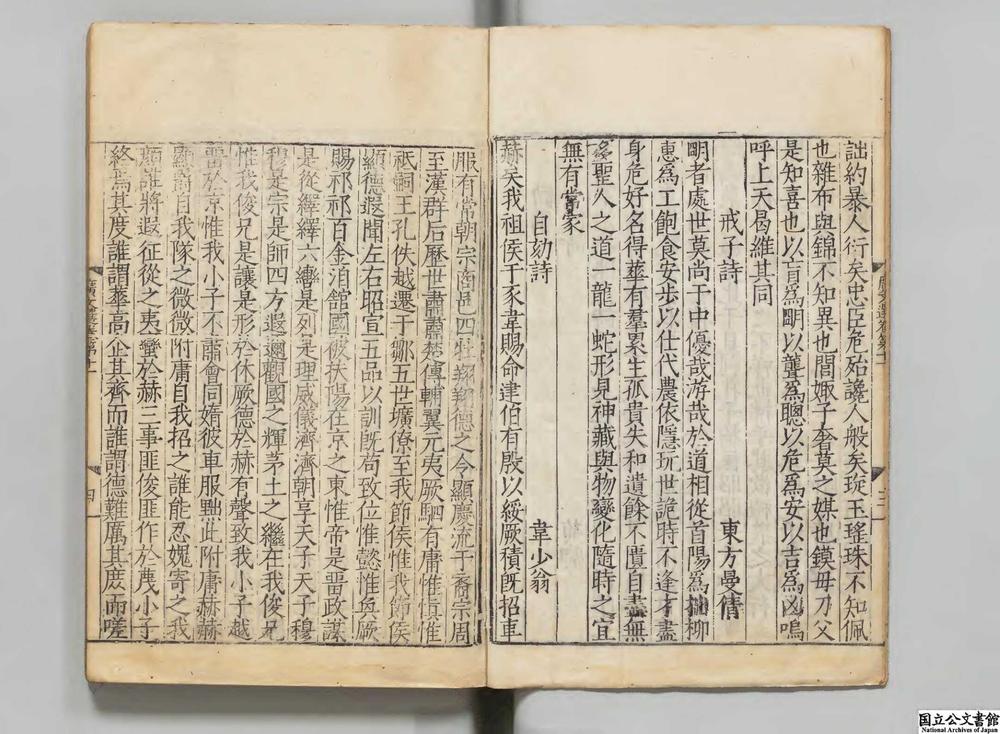 詘約暴人衍矣忠臣危殆讒人般矣琁玉瑤珠不知佩
也雜布與錦不知異也閭娵子奢莫之媒也嫫母刀父
是知喜也以盲爲明以聾爲聰以危爲安以吉爲凶嗚
呼上天曷維其同
戒子詩 東方曼倩
明者處世莫尚于中優哉游哉於道相從首陽爲拙柳
惠爲工飽食安步以仕代農依隱玩世詭時不逢才盡
身危好名得華有羣累生孤貴失和遺餘不匱自盡無
多聖人之道一龍一蛇形見神藏與物變化隨時之宜
無有常家
自劾詩 韋少翁
赫矣我祖侯于豕韋賜命建伯有殷以綏厥積旣招車
服有常朝宗商邑四牡翔翔德之令顯慶流于裔宗周
至漢群后歷世肅肅楚傅輔翼元夷厥駟有庸惟愼惟
祗嗣王孔佚越遷于鄒五世壙僚至我節侯惟我節侯
顯德遐聞左右昭宣五品以訓旣耇致位惟懿惟奐厥
賜祁祁百金洎館國彼扶陽在京之東惟帝是畱政謀
是從繹繹六轡是列是理威儀濟濟朝享天子天子穆
穆是宗是師四方遐邇觀國之輝茅土之繼在我俊兄
惟我俊兄是讓是形於休厥德於赫有聲致我小子越
畱於京惟我小子不肅會同媠彼車服黜此附庸赫赫
顯爵自我隊之微微附庸自我招之誰能忍媿寄之我
顏誰將遐征從之夷蠻於赫三事匪俊匪作於蔑小子
終焉其度誰謂華高企其齊而誰謂德難厲其庶而嗟
廣文選卷第十一
三
廣文選卷第十一
四
国立公文書館
National Archives of Japan